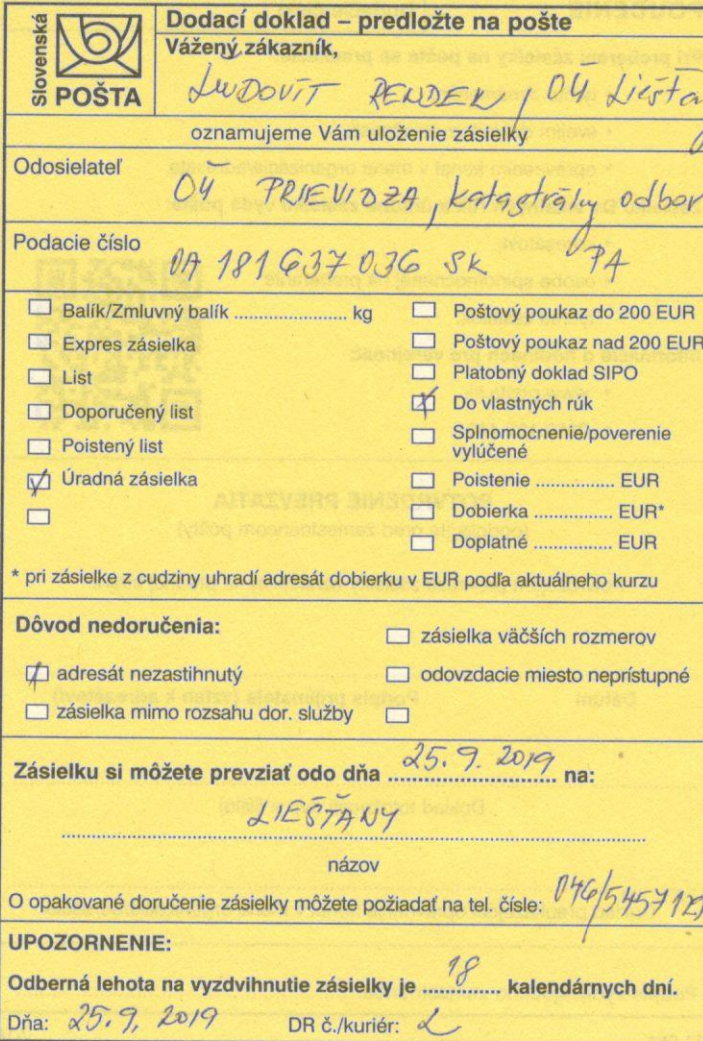 Slovenská
POŠTA
Dodací doklad – predložte na pošte
Vážený zákazník,
ĽUDOVÍT RENDEK, OU Liešťany
oznamujeme Vám uloženie zásielky
Odosielateľ
OÚ PRIEVIDZA, katastrálny odbor
Podacie číslo
UA 181 637 036 SK PA
Balík/Zmluvný balík ...................... kg
Expres zásielka
List
Doporučený list
Poistený list
Úradná zásielka
Poštový poukaz do 200 EUR
Poštový poukaz nad 200 EUR
Platobný doklad SIPO
Do vlastných rúk
Splnomocnenie/poverenie
vylúčené
Poistenie ............... EUR
Dobierka ............... EUR*
Doplatné ............... EUR
* pri zásielke z cudziny uhradí adresát dobierku v EUR podľa aktuálneho kurzu
Dôvod nedoručenia:
zásielka väčších rozmerov
adresát nezastihnutý
odovzdacie miesto neprístupné
zásielka mimo rozsahu dor. služby
Zásielku si môžete prevziať odo dňa 25. 9. 2019 na:
LIEŠŤANY
názov
O opakované doručenie zásielky môžete požiadať na tel. čísle: 046/
UPOZORNENIE:
Odberná lehota na vyzdvihnutie zásielky je 18 kalendárnych dní.
Dňa: 25. 9. 2019 DR č./kuriér: 2